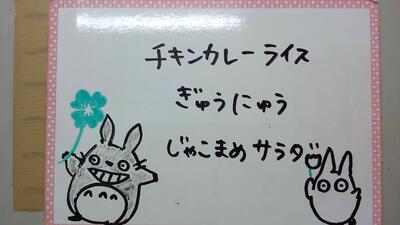 チキンカレーライス
ぎゅうにゅう
じゃこまめサラダ